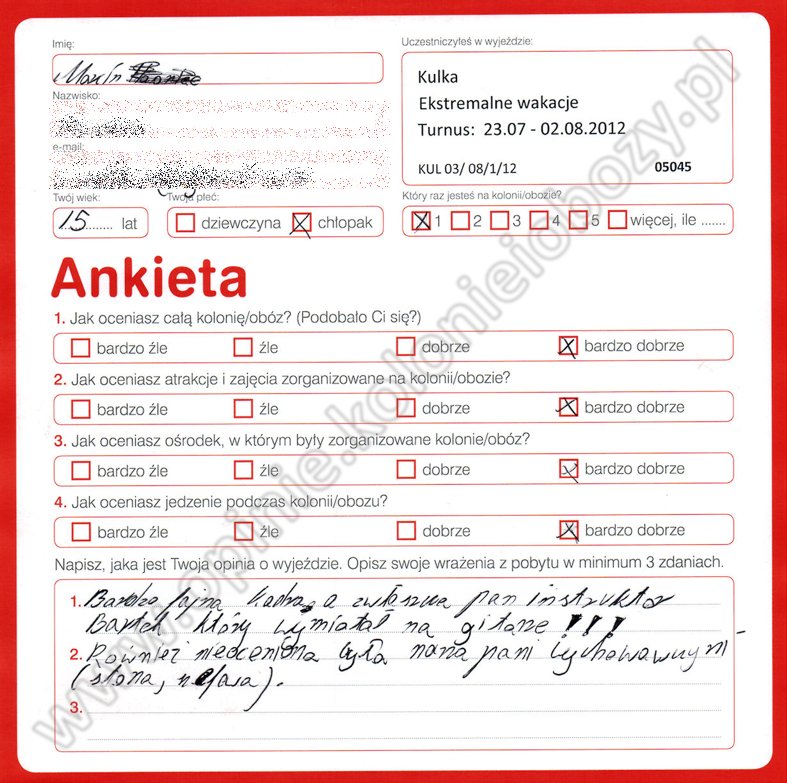 Imię:
Marcin
Nazwisko:
e-mail:
Twój wiek:
15 lat
Twoja płeć:
dziewczyna chłopak
Uczestniczyłeś w wyjeździe:
Kulka
Ekstremalne wakacje
Turnus: 23.07 - 02.08.2012
KUL 03/ 08/1/12 05045
Który raz jesteś na kolonii/obozie?
1 2 3 4 5 więcej, ile .......
Ankieta
1. Jak oceniasz całą kolonię/obóz? (Podobało Ci się?)
bardzo źle źle dobrze bardzo dobrze
2. Jak oceniasz atrakcje i zajęcia zorganizowane na kolonii/obozie?
bardzo źle źle dobrze bardzo dobrze
3. Jak oceniasz ośrodek, w którym były zorganizowane kolonie/obóz?
bardzo źle źle dobrze bardzo dobrze
4. Jak oceniasz jedzenie podczas kolonii/obozu?
bardzo źle źle dobrze bardzo dobrze
Napisz, jaka jest Twoja opinia o wyjeździe. Opisz swoje wrażenia z pobytu w minimum 3 zdaniach.
1. Bardzo fajna kadra, a zwłaszcza pan instruktor
Bartek który wymiatał na gitarze !!!
2. Również nieoceniona była nasza pani
3.
www.opinie.kolonieiobozy.pl